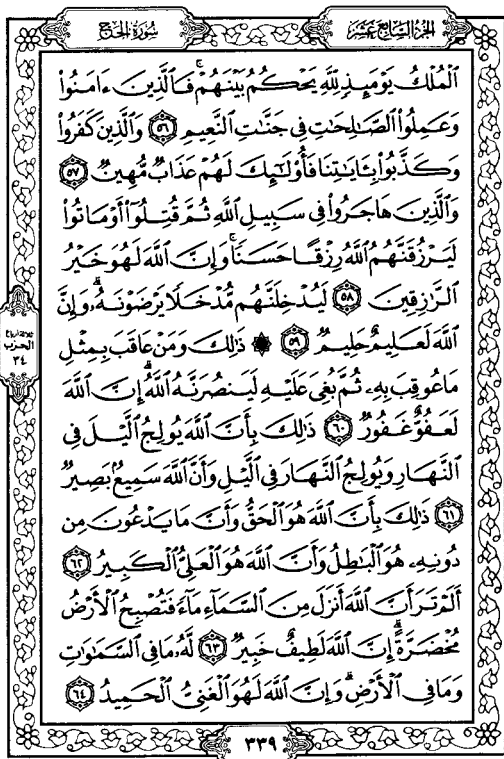 سُورَةُ الحَجِّ
الجُزْءُ السَّابِعَ عَشَرَ
ٱلْمُلْكُ يَوْمَئِذٍ لِّلَّهِ يَحْكُمُ بَيْنَهُمْ ۚ فَٱلَّذِينَ ءَامَنُوا۟
وَعَمِلُوا۟ ٱلصَّٰلِحَٰتِ فِى جَنَّٰتِ ٱلنَّعِيمِ ٥٦ وَٱلَّذِينَ كَفَرُوا۟
وَكَذَّبُوا۟ بِـَٔايَٰتِنَا فَأُو۟لَٰٓئِكَ لَهُمْ عَذَابٌ مُّهِينٌ ٥٧
وَٱلَّذِينَ هَاجَرُوا۟ فِى سَبِيلِ ٱللَّهِ ثُمَّ قُتِلُوٓا۟ أَوْ مَاتُوا۟
لَيَرْزُقَنَّهُمُ ٱللَّهُ رِزْقًا حَسَنًا ۚ وَإِنَّ ٱللَّهَ لَهُوَ خَيْرُ
ٱلرَّٰزِقِينَ ٥٨ لَيُدْخِلَنَّهُم مُّدْخَلًا يَرْضَوْنَهُۥ ۗ وَإِنَّ
ٱللَّهَ لَعَلِيمٌ حَلِيمٌ ٥٩ ۞ ذَٰلِكَ وَمَنْ عَاقَبَ بِمِثْلِ
مَا عُوقِبَ بِهِۦ ثُمَّ بُغِىَ عَلَيْهِ لَيَنصُرَنَّهُ ٱللَّهُ ۗ إِنَّ ٱللَّهَ
لَعَفُوٌّ غَفُورٌ ٦٠ ذَٰلِكَ بِأَنَّ ٱللَّهَ يُولِجُ ٱلَّيْلَ فِى
ٱلنَّهَارِ وَيُولِجُ ٱلنَّهَارَ فِى ٱلَّيْلِ وَأَنَّ ٱللَّهَ سَمِيعٌۢ بَصِيرٌ
٦١ ذَٰلِكَ بِأَنَّ ٱللَّهَ هُوَ ٱلْحَقُّ وَأَنَّ مَا يَدْعُونَ مِن
دُونِهِۦ هُوَ ٱلْبَٰطِلُ وَأَنَّ ٱللَّهَ هُوَ ٱلْعَلِىُّ ٱلْكَبِيرُ ٦٢
أَلَمْ تَرَ أَنَّ ٱللَّهَ أَنزَلَ مِنَ ٱلسَّمَآءِ مَآءً فَتُصْبِحُ ٱلْأَرْضُ
مُخْضَرَّةً ۗ إِنَّ ٱللَّهَ لَطِيفٌ خَبِيرٌ ٦٣ لَّهُۥ مَا فِى ٱلسَّمَٰوَٰتِ
وَمَا فِى ٱلْأَرْضِ ۗ وَإِنَّ ٱللَّهَ لَهُوَ ٱلْغَنِىُّ ٱلْحَمِيدُ ٦٤
ثلاثة أرباع
الحزب
٣٤
٣٣٩